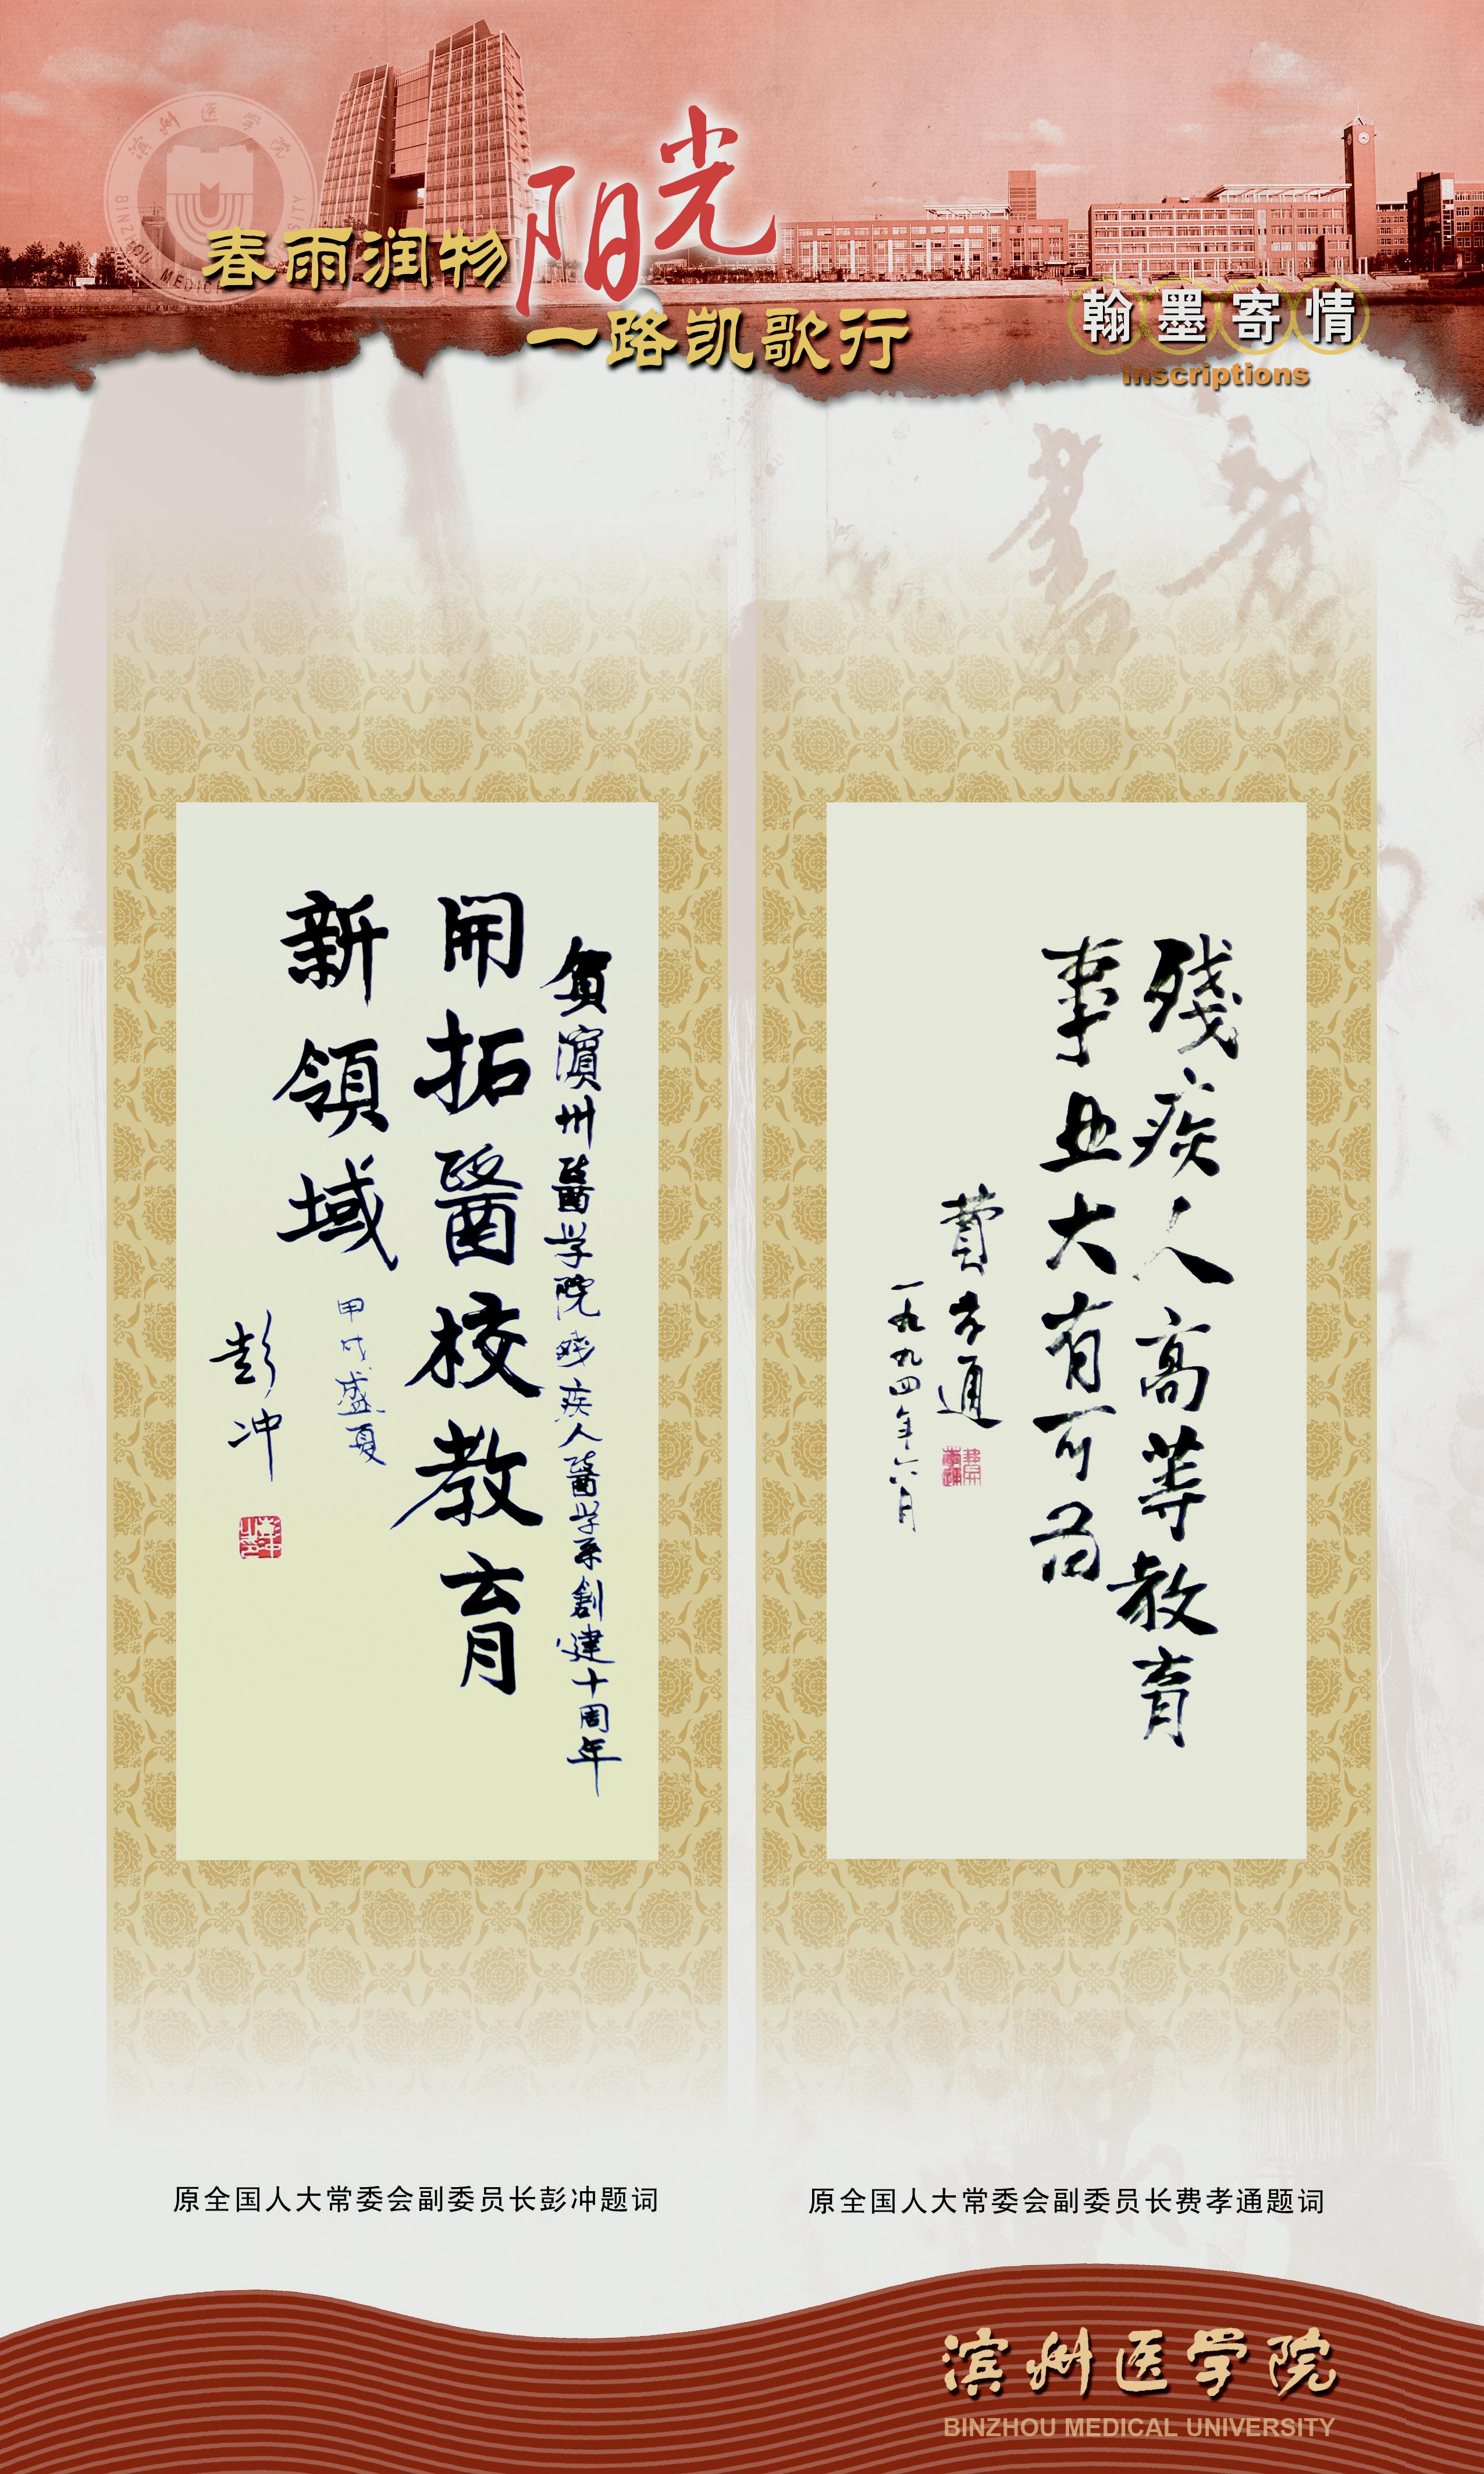 滨州医学院
BINZHOU MEDIC
SITY
春雨润物
阳光
一路凯歌行
翰墨寄情
Inscriptions
賀濱州醫学院残疾人醫学系創建十周年
開拓醫校教育
新領域
甲戌盛夏
彭冲
残疾人高等教育
事业大有可为
費孝通
一九九四年六月
原全国人大常委会副委员长彭冲题词
原全国人大常委会副委员长费孝通题词
滨州医学院
BINZHOU MEDICAL UNIVERSITY